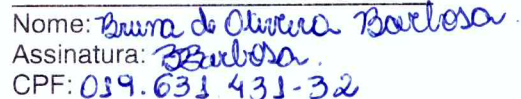 Nome: Bruna de Oliveira Barbosa
Assinatura: BBarbosa.
CPF: 019.631.431-32